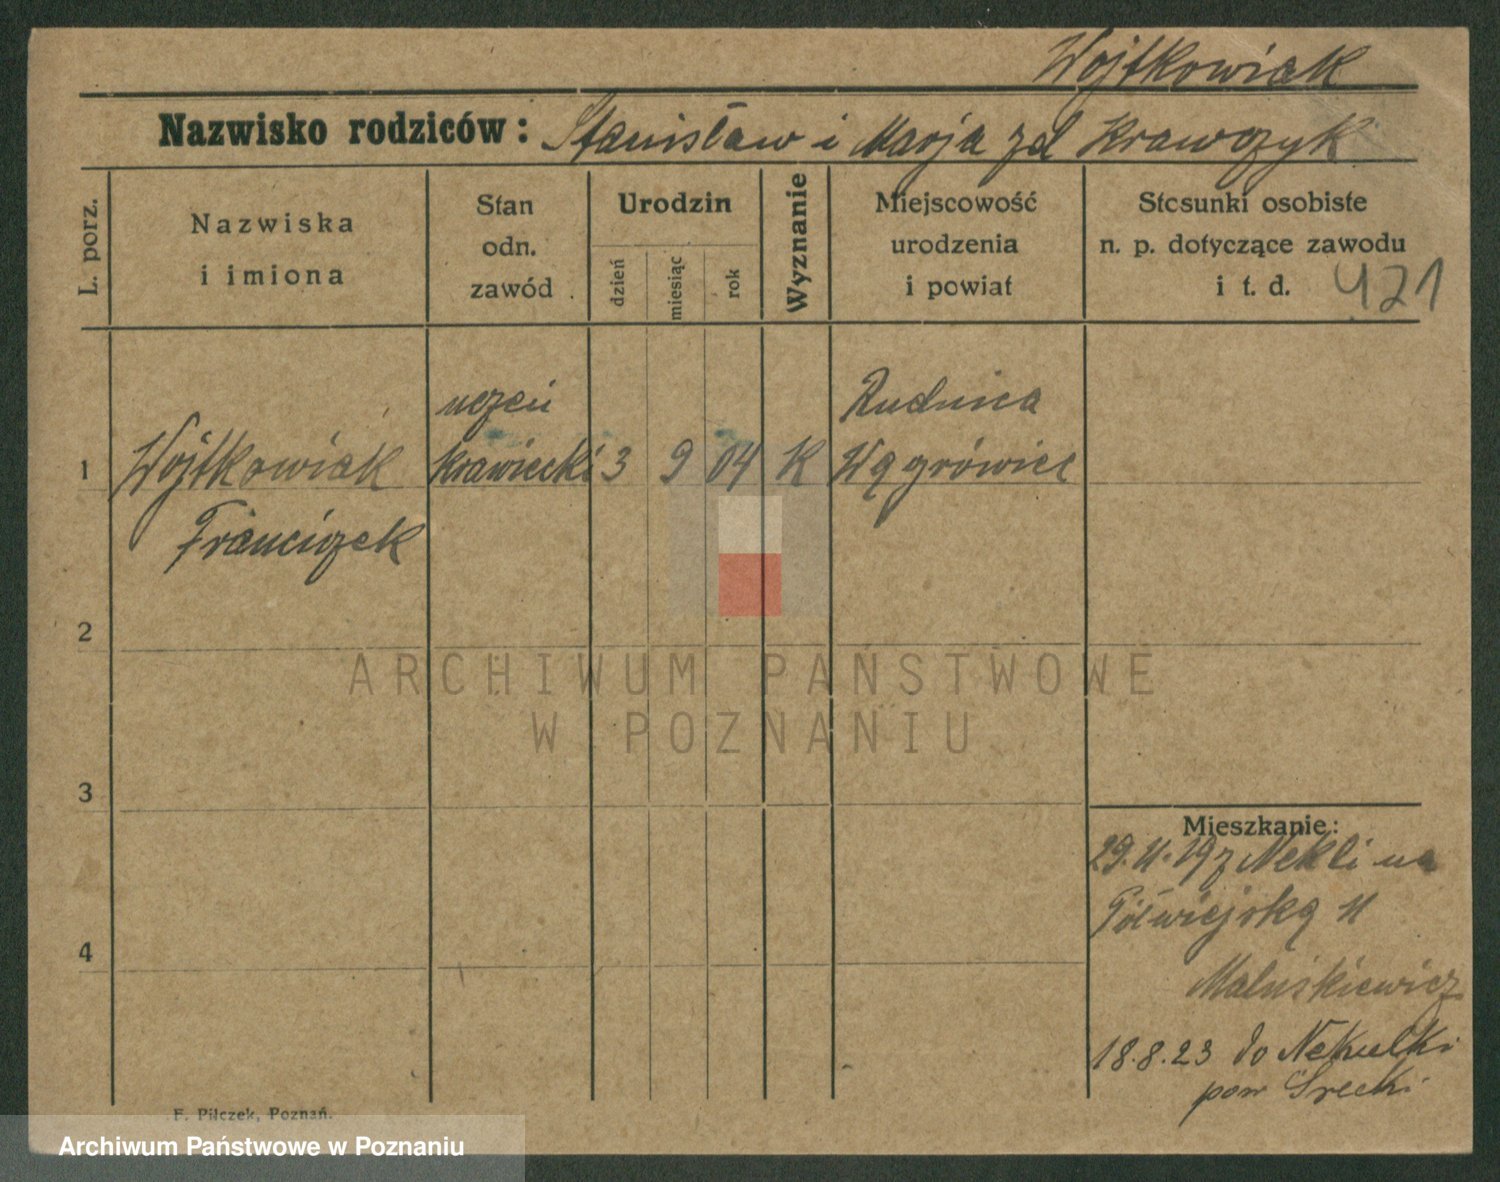 Wojtkowiak
Nazwisko rodziców: Stanisław i Marja zd Krawczyk
L. porz.
Nazwiska
i imiona
Stan
odn.
zawód
Urodzin
dzień
miesiąc
rok
Wyznanie
Miejscowość
urodzenia
i powiat
Stosunki osobiste
n. p. dotyczące zawodu
i t. d.
421
1
Wojtkowiak
Franciszek
uczeń
krawiecki
3 9 04 K
Rudnica
Wągrówiec
2
3
4
Mieszkanie:
29.11.19 z Nekli na
Półwiejską 11
Maluskiewicz
18.8.23 do Nekielki
pow Srecki
F. Pilczek, Poznań.
ARCHIWUM PAŃSTWOWE
W POZNANIU
Archiwum Państwowe w Poznaniu